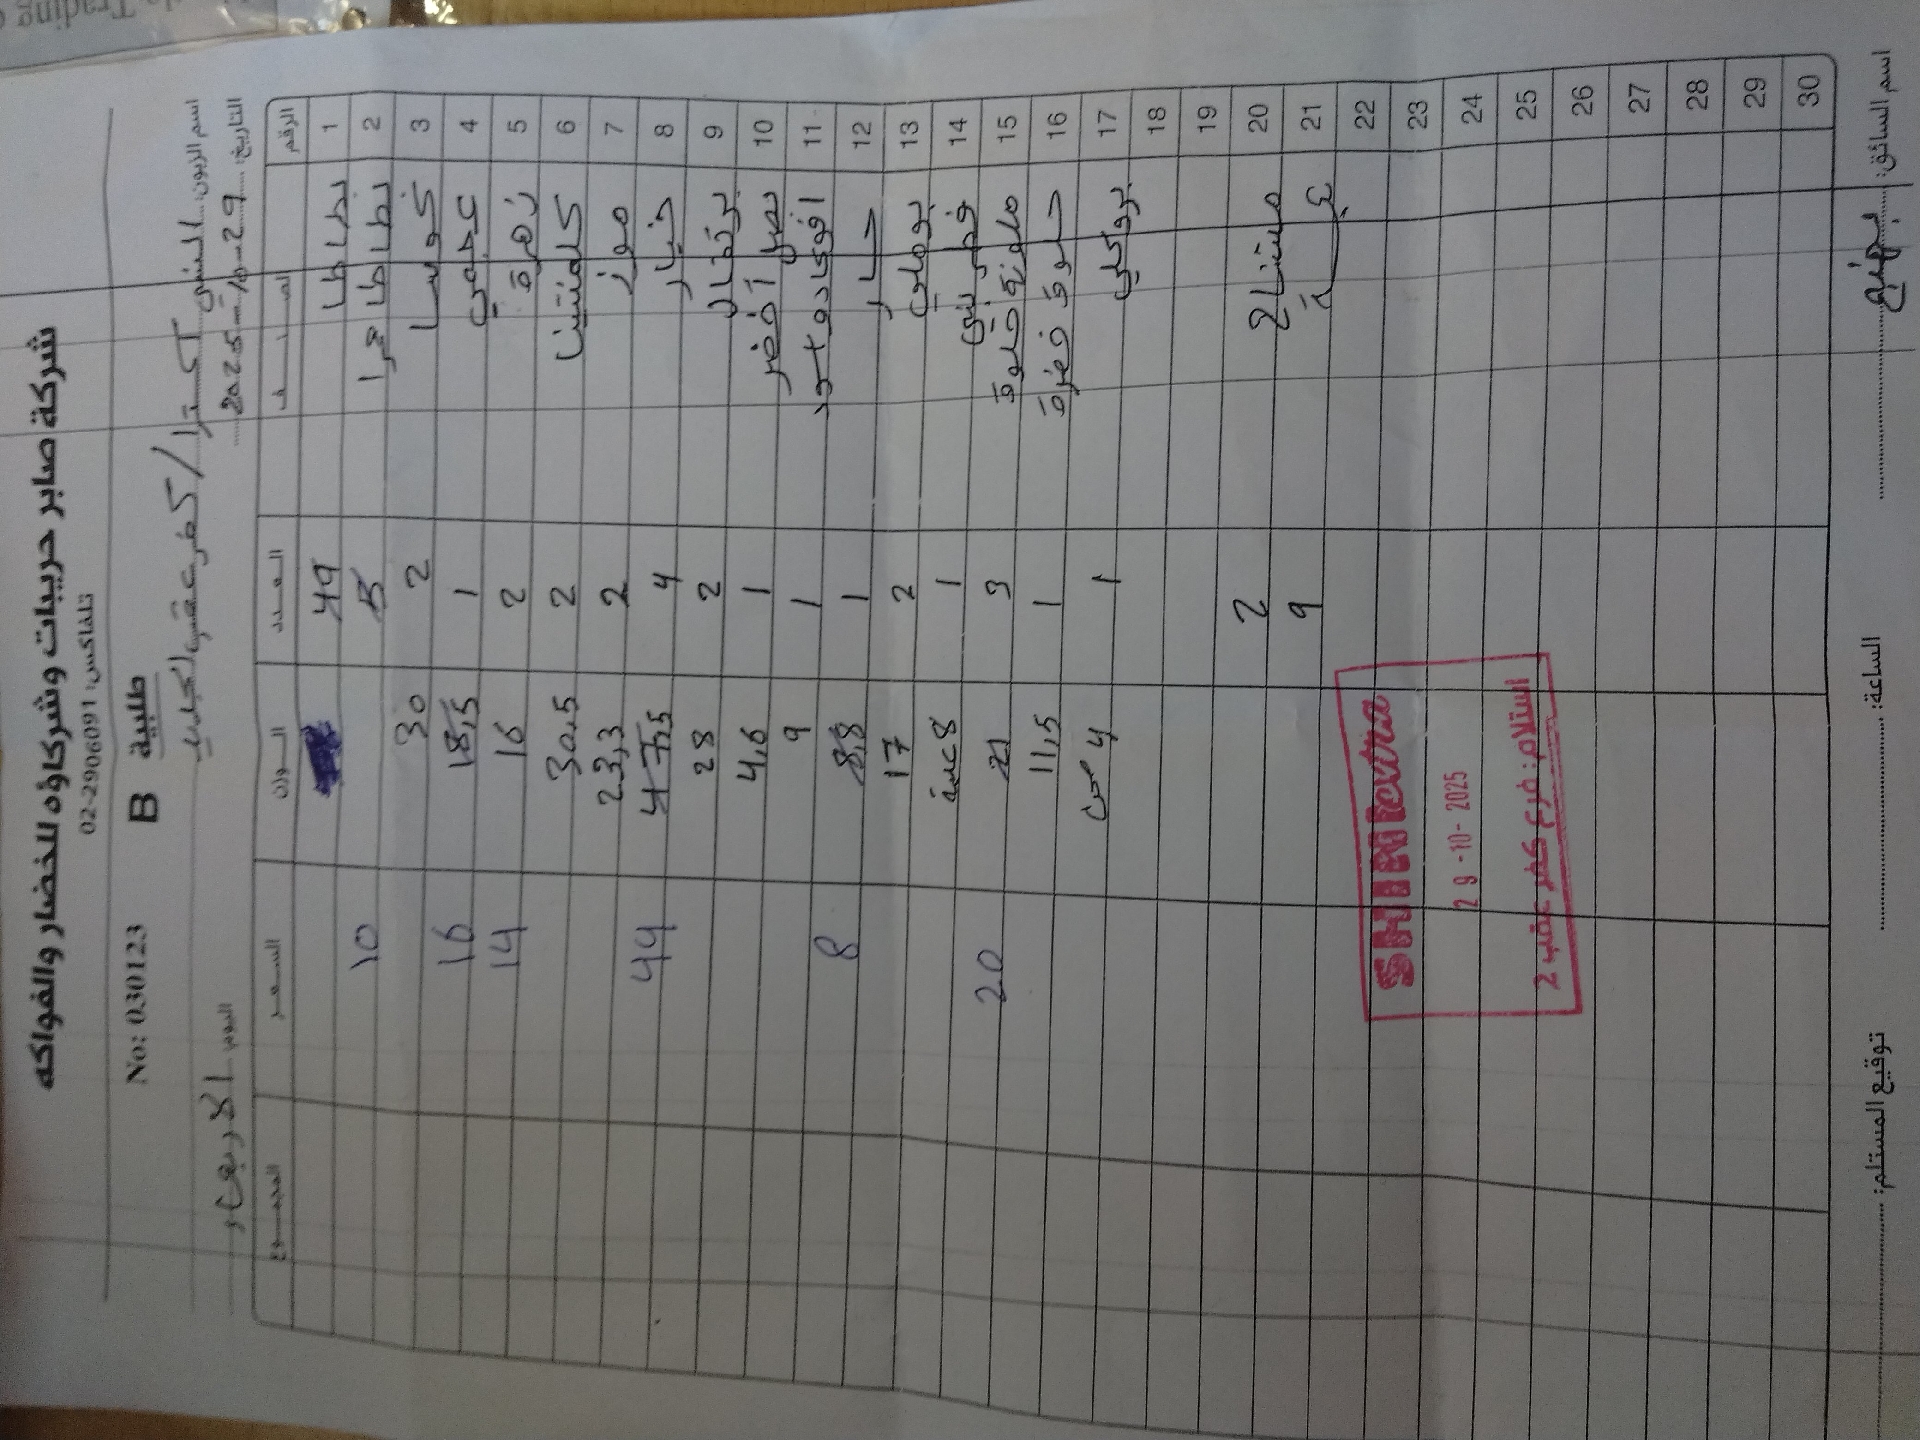 شركة صابر حريبات وشركاؤه للخضار والفواكه
تلفاكس: 02-2906091
No: 030123 B طلبية
اسم الزبون: الشني اكسترا / كفر عقب الجديد
التاريخ: 29-10-2025 اليوم الاربعاء
الرقم الصنف العدد الوزن السعر المجموع
1 بطاطا 49
2 بطاطا حمرا 5 10
3 كوسا 2 30
4 عجمي 1 18,5 16
5 زهرة 2 16 14
6 كلمنتينا 2 30,5
7 موز 2 23,3
8 خيار 4 47,5 44
9 برتقال 2 28
10 بصل أخضر 1 4,6
11 افوكادو اسود 1 9
12 حار 1 8,8 8
13 بوملي 2 17
14 فطر بني 1 8 علبة
15 ملونة حلوة 3 21 20
16 حلوة خمرة 1 11,5
17 بروكلي 1 4
18
19
20 مشتاح 2
21 9
22
23
24
25
26
27
28
29
30
SHINI extra
29-10-2025
استلام: فرع كفر عقب 2
اسم السائق: الساعة: توقيع المستلم:
de Trading